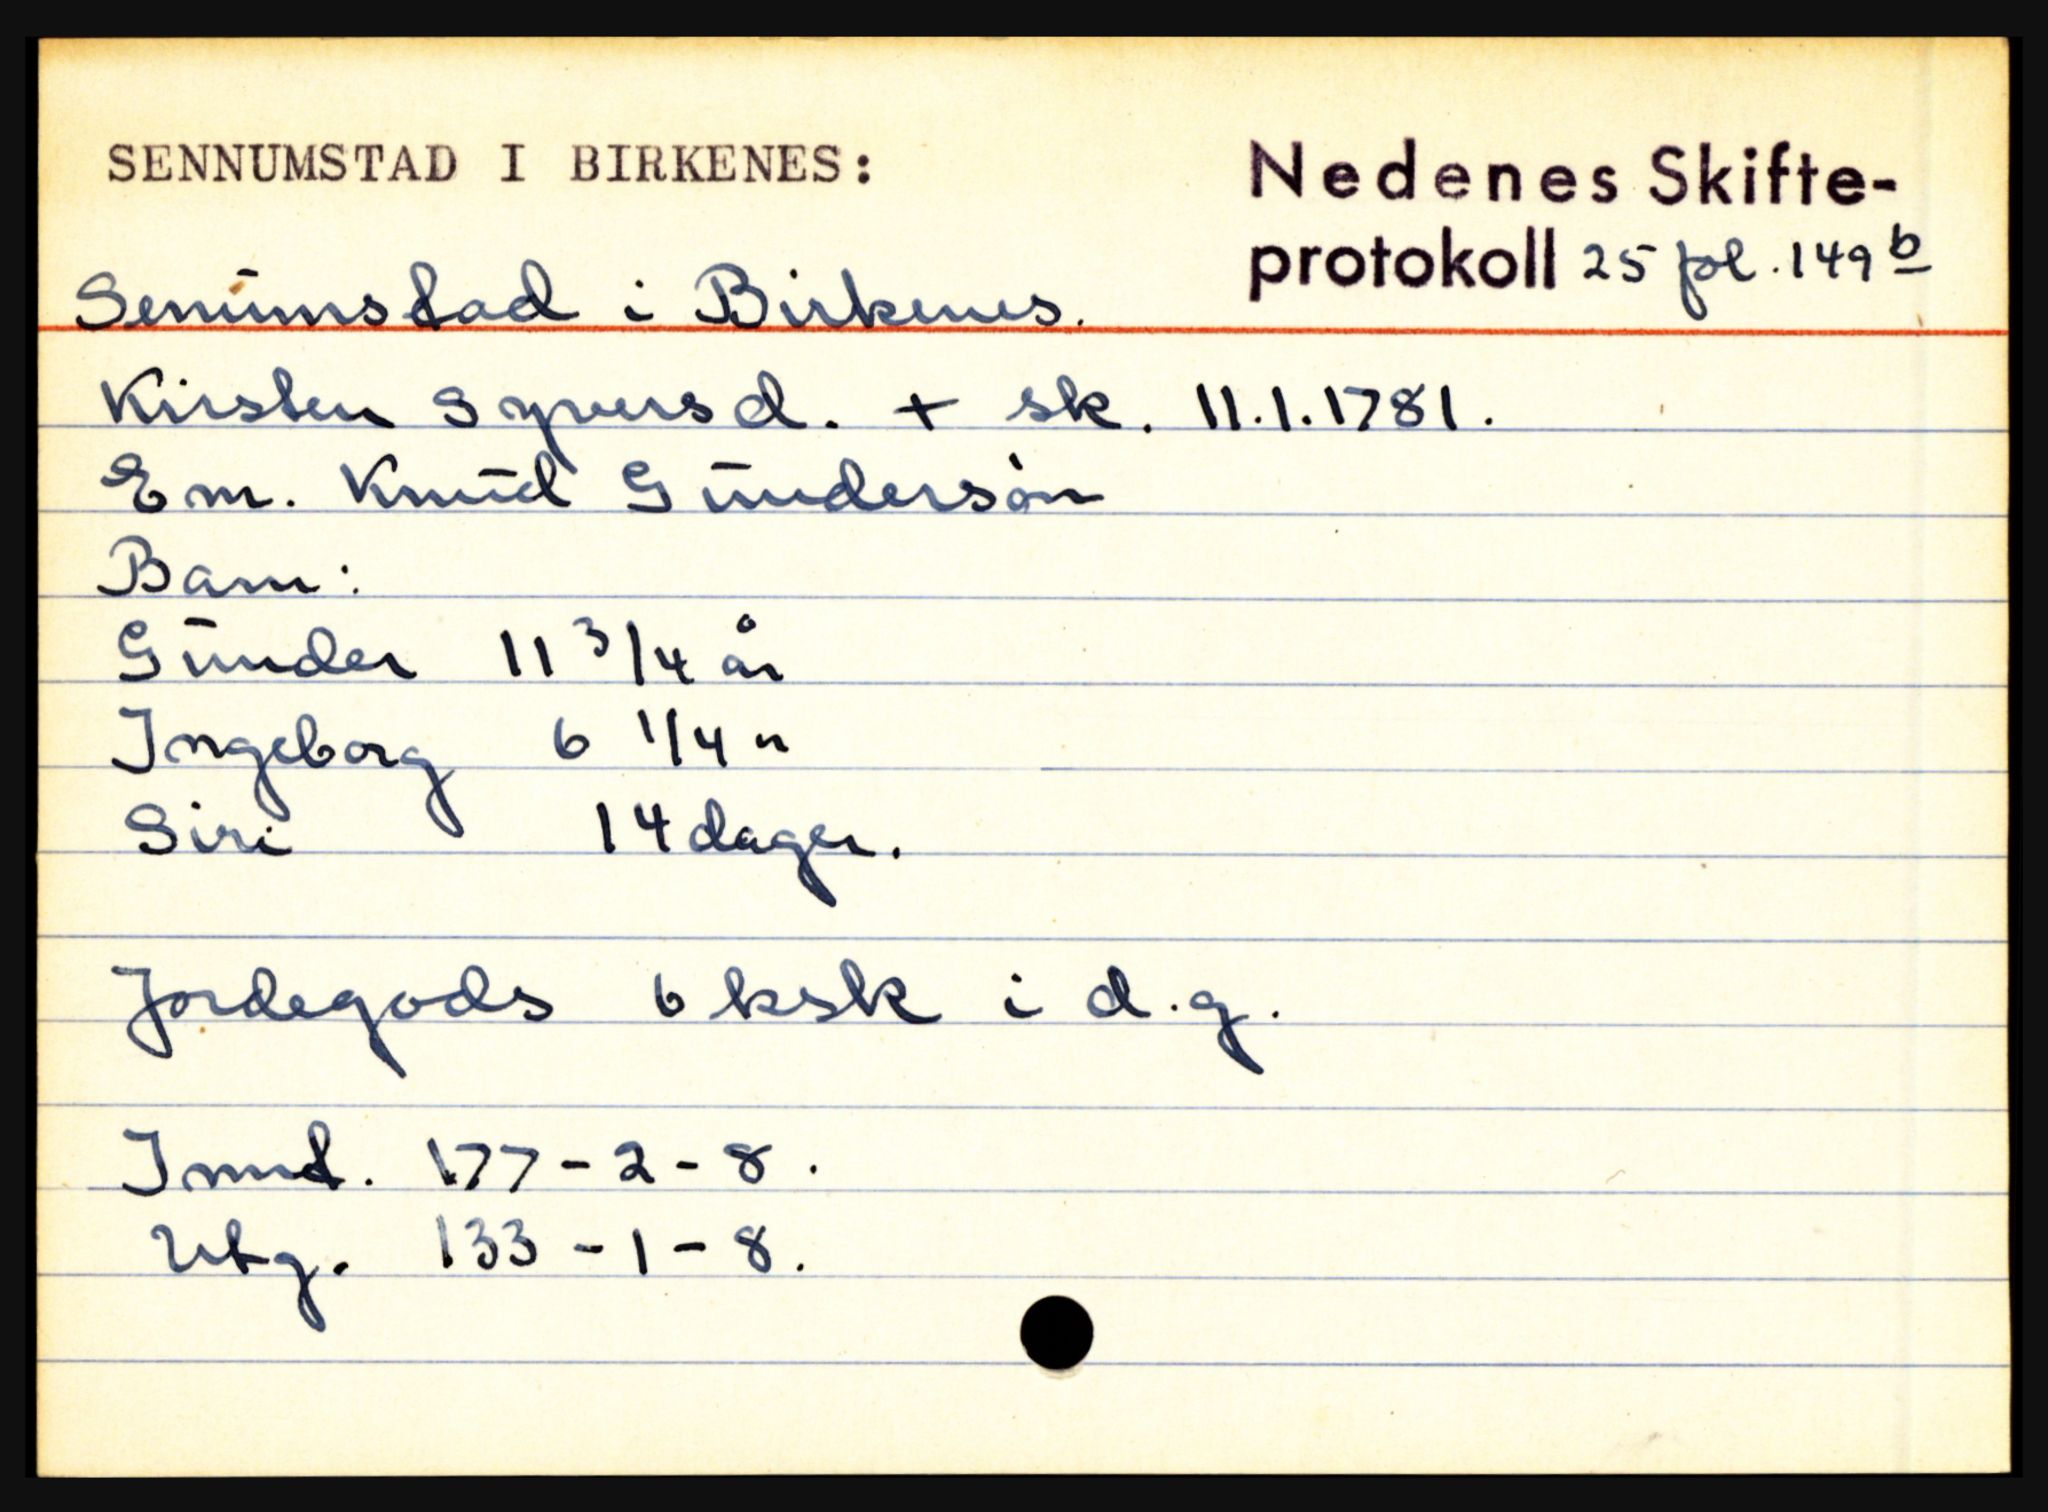 SENNUMSTAD I BIRKENES:
Nedenes Skifte-
protokoll 25 fol. 149 b
Senumstad i Birkenes.
Kirsten Syversd. + sk. 11.1.1781.
Em. Knud Gundersøn
Barn:
Gunder 11 3/4 år
Ingeborg 6 1/4 "
Siri 14 dager.
Jordegods 6 ksk i d.g.
Innt. 177-2-8.
Utg. 133-1-8.